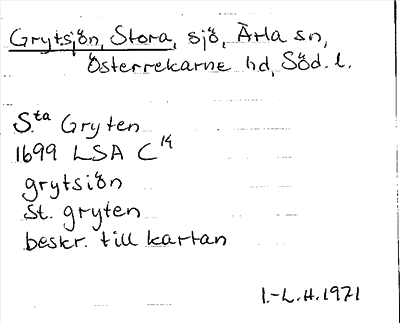 Grytsjön, Stora, sjö, Ärla sn,
Österrekarne hd, Söd. l.
Sta Gryten
1699 LSA C14
grytsiön
St. gryten
beskr. till kartan
I.-L.H. 1971